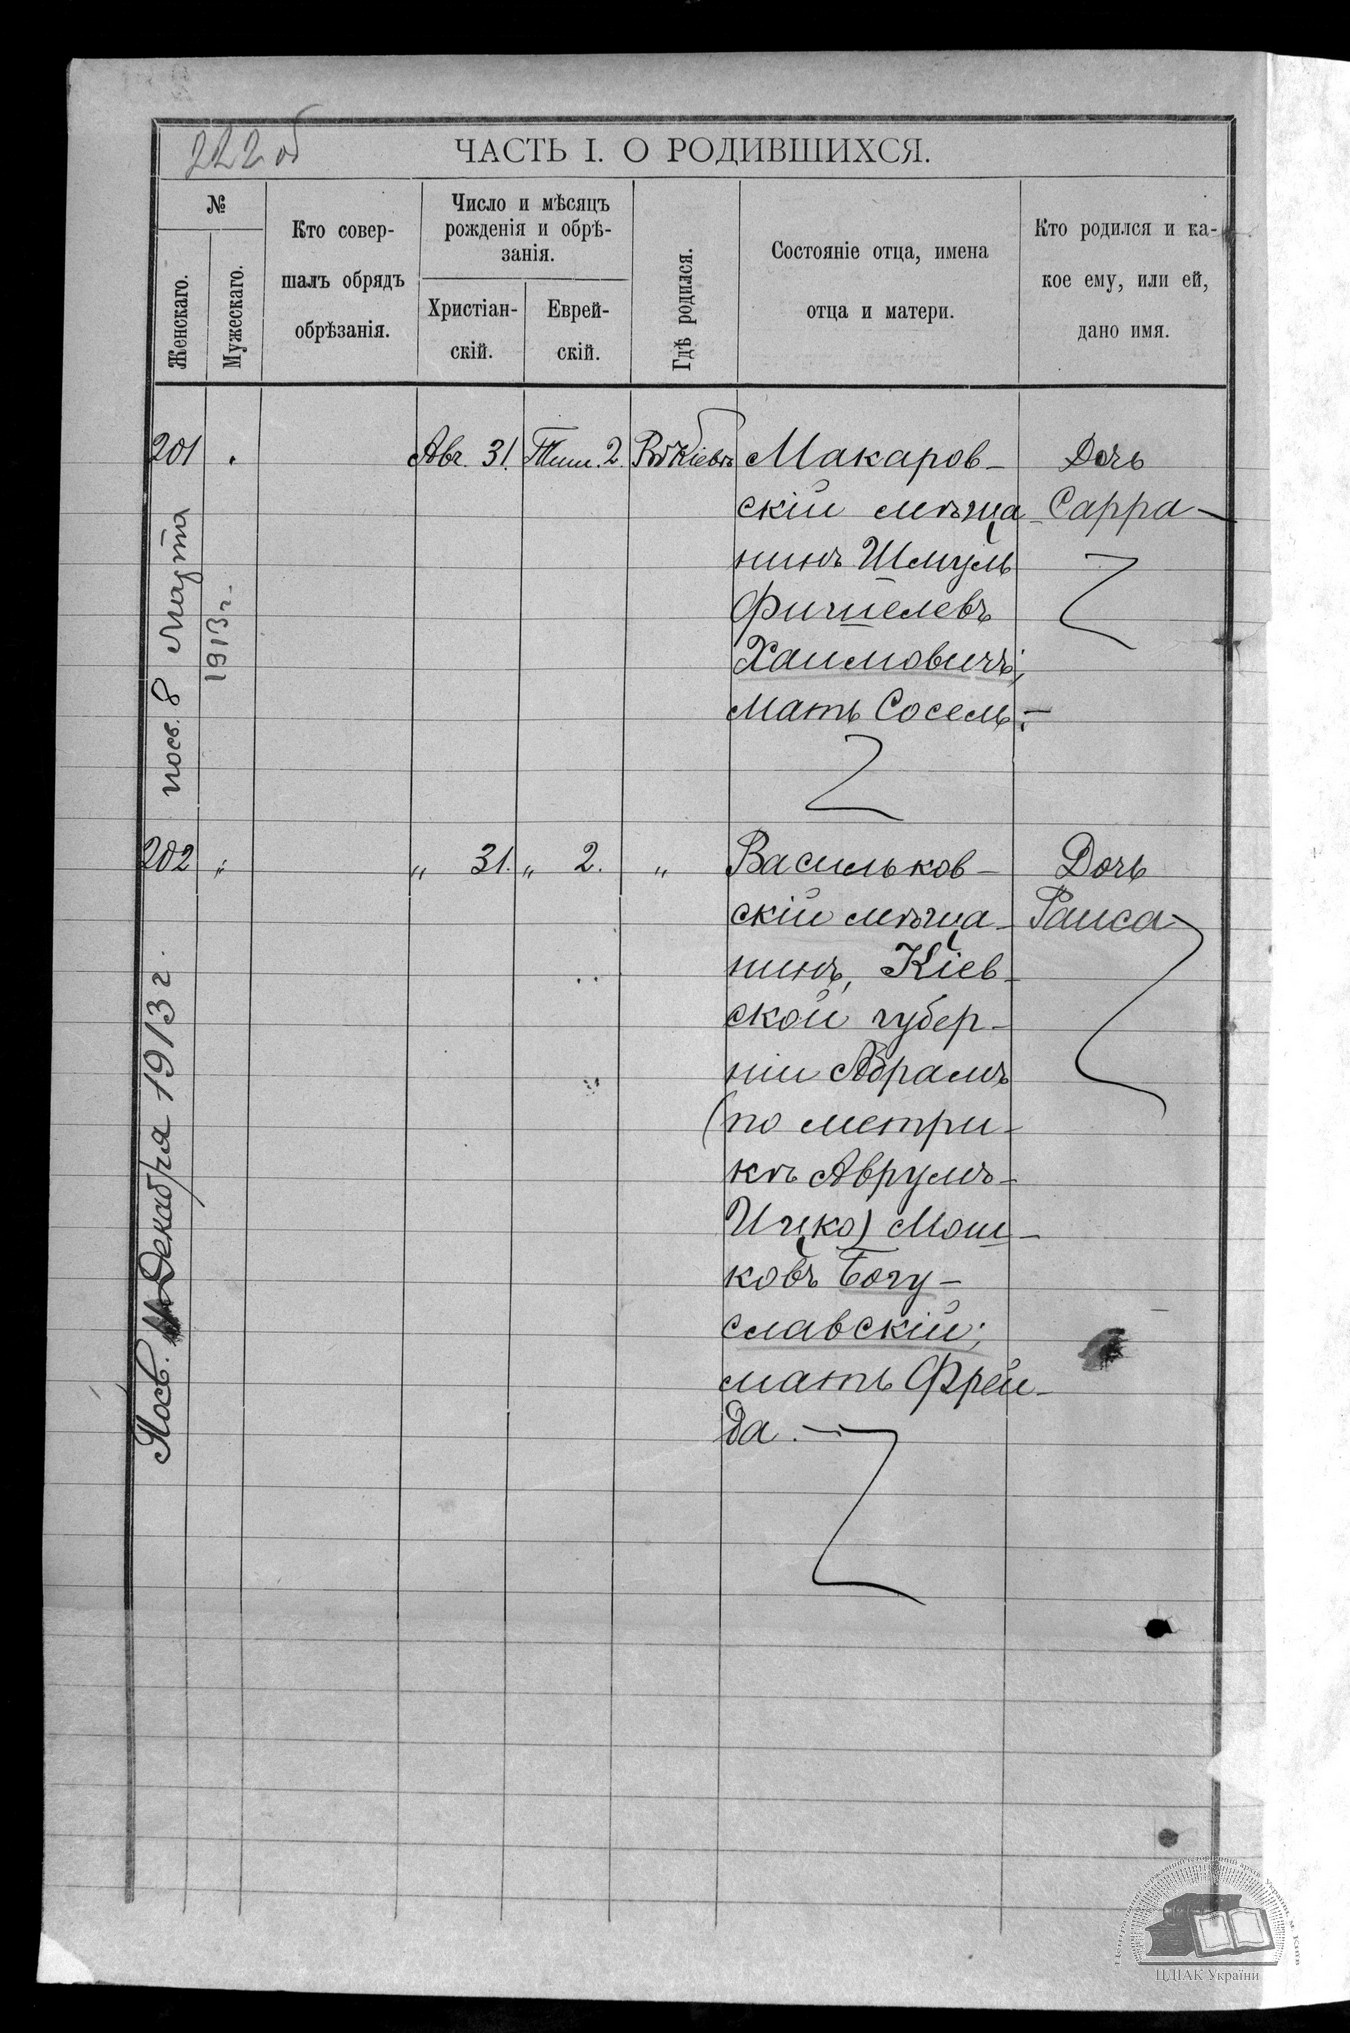 222 об
ЧАСТЬ I. О РОДИВШИХСЯ.
№
Женскаго.
Мужескаго.
Кто совер-
шалъ обрядъ
обрѣзанія.
Число и мѣсяцъ
рожденія и обрѣ-
занія.
Христіан-
скій.
Еврей-
скій.
Гдѣ родился.
Состояніе отца, имена
отца и матери.
Кто родился и ка-
кое ему, или ей,
дано имя.
201 Авг. 31. Тиш. 2. Въ Кіевѣ Макаров- Дочь
скій мѣща- Сарра
нинъ Шмуль
Фишелевъ
Хаимовичъ;
мать Сосель.
посв. 8 Марта
1913 г.
202 „ „ 31. „ 2. „ Васильков- Дочь
скій мѣща- Раиса
нинъ, Кіев-
ской губер-
ніи Абрамъ
(по метри-
кѣ Аврумъ-
Ицко) Мош-
ковъ Богу-
славскій;
мать Фрей-
да.
Посв. Декабря 1913 г.
ЦДІАК України